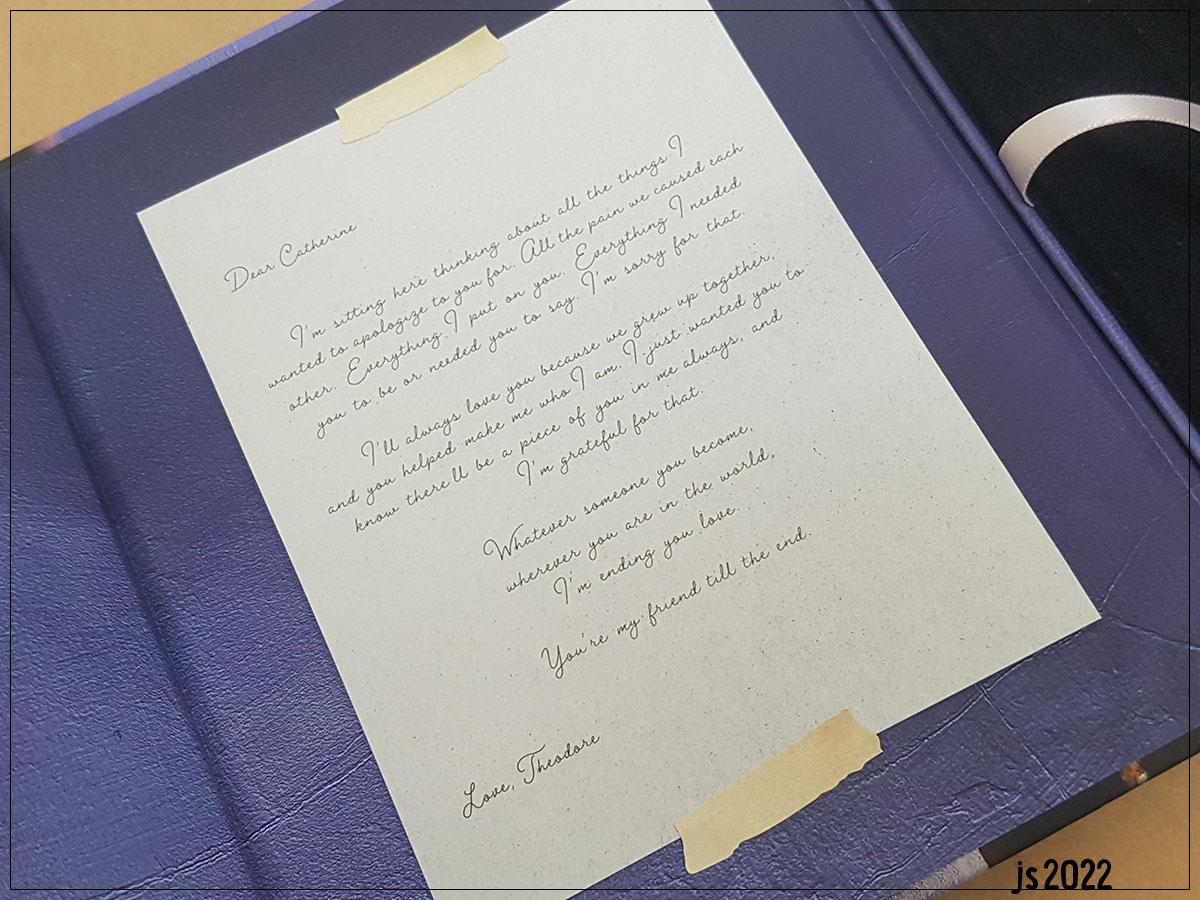 Dear Catherine
I'm sitting here thinking about all the things I
wanted to apologize to you for. All the pain we caused each
other. Everything I put on you. Everything I needed
you to be or needed you to say. I'm sorry for that.
I'll always love you because we grew up together,
and you helped make me who I am. I just wanted you to
know there'll be a piece of you in me always, and
I'm grateful for that.
Whatever someone you become,
wherever you are in the world,
I'm ending you love.
You're my friend till the end.
Love, Theodore
js2022